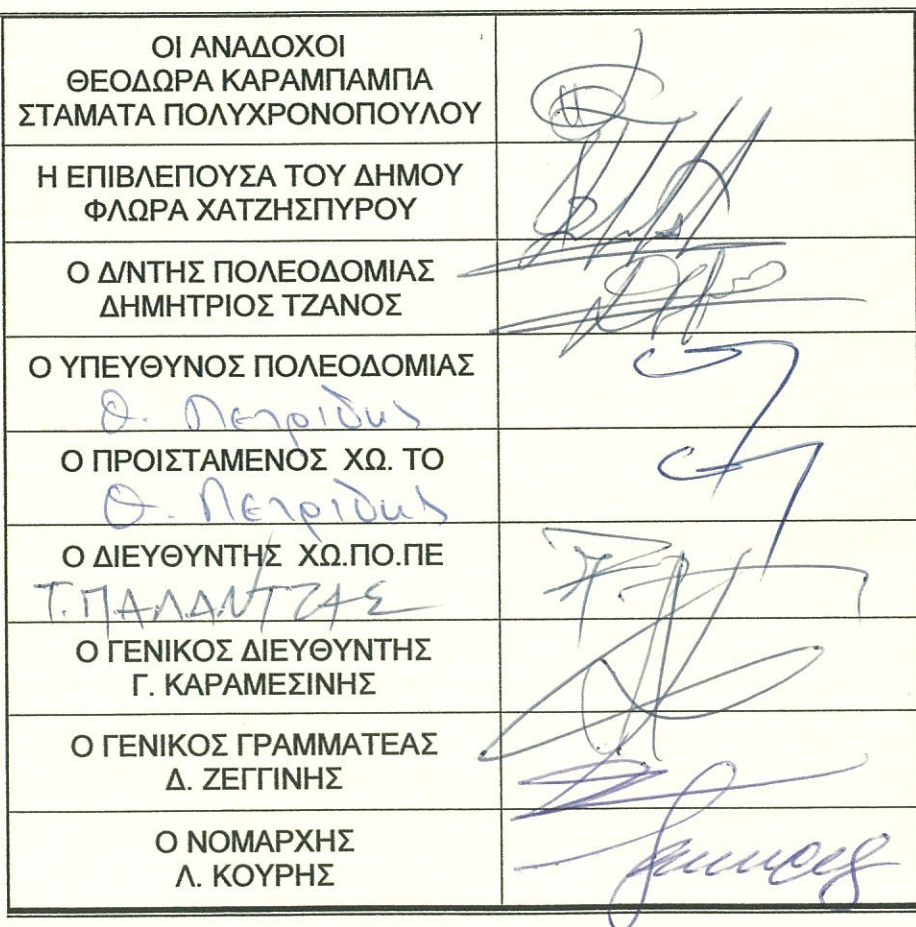 ΟΙ ΑΝΑΔΟΧΟΙ
ΘΕΟΔΩΡΑ ΚΑΡΑΜΠΑΜΠΑ
ΣΤΑΜΑΤΑ ΠΟΛΥΧΡΟΝΟΠΟΥΛΟΥ
Η ΕΠΙΒΛΕΠΟΥΣΑ ΤΟΥ ΔΗΜΟΥ
ΦΛΩΡΑ ΧΑΤΖΗΣΠΥΡΟΥ
Ο Δ/ΝΤΗΣ ΠΟΛΕΟΔΟΜΙΑΣ
ΔΗΜΗΤΡΙΟΣ ΤΖΑΝΟΣ
Ο ΥΠΕΥΘΥΝΟΣ ΠΟΛΕΟΔΟΜΙΑΣ
Θ. Πετρίδης
Ο ΠΡΟΙΣΤΑΜΕΝΟΣ ΧΩ. ΤΟ
Θ. Πετρίδης
Ο ΔΙΕΥΘΥΝΤΗΣ ΧΩ.ΠΟ.ΠΕ
Τ. ΠΑΛΑΝΤΖΑΣ
Ο ΓΕΝΙΚΟΣ ΔΙΕΥΘΥΝΤΗΣ
Γ. ΚΑΡΑΜΕΣΙΝΗΣ
Ο ΓΕΝΙΚΟΣ ΓΡΑΜΜΑΤΕΑΣ
Δ. ΖΕΓΓΙΝΗΣ
Ο ΝΟΜΑΡΧΗΣ
Λ. ΚΟΥΡΗΣ